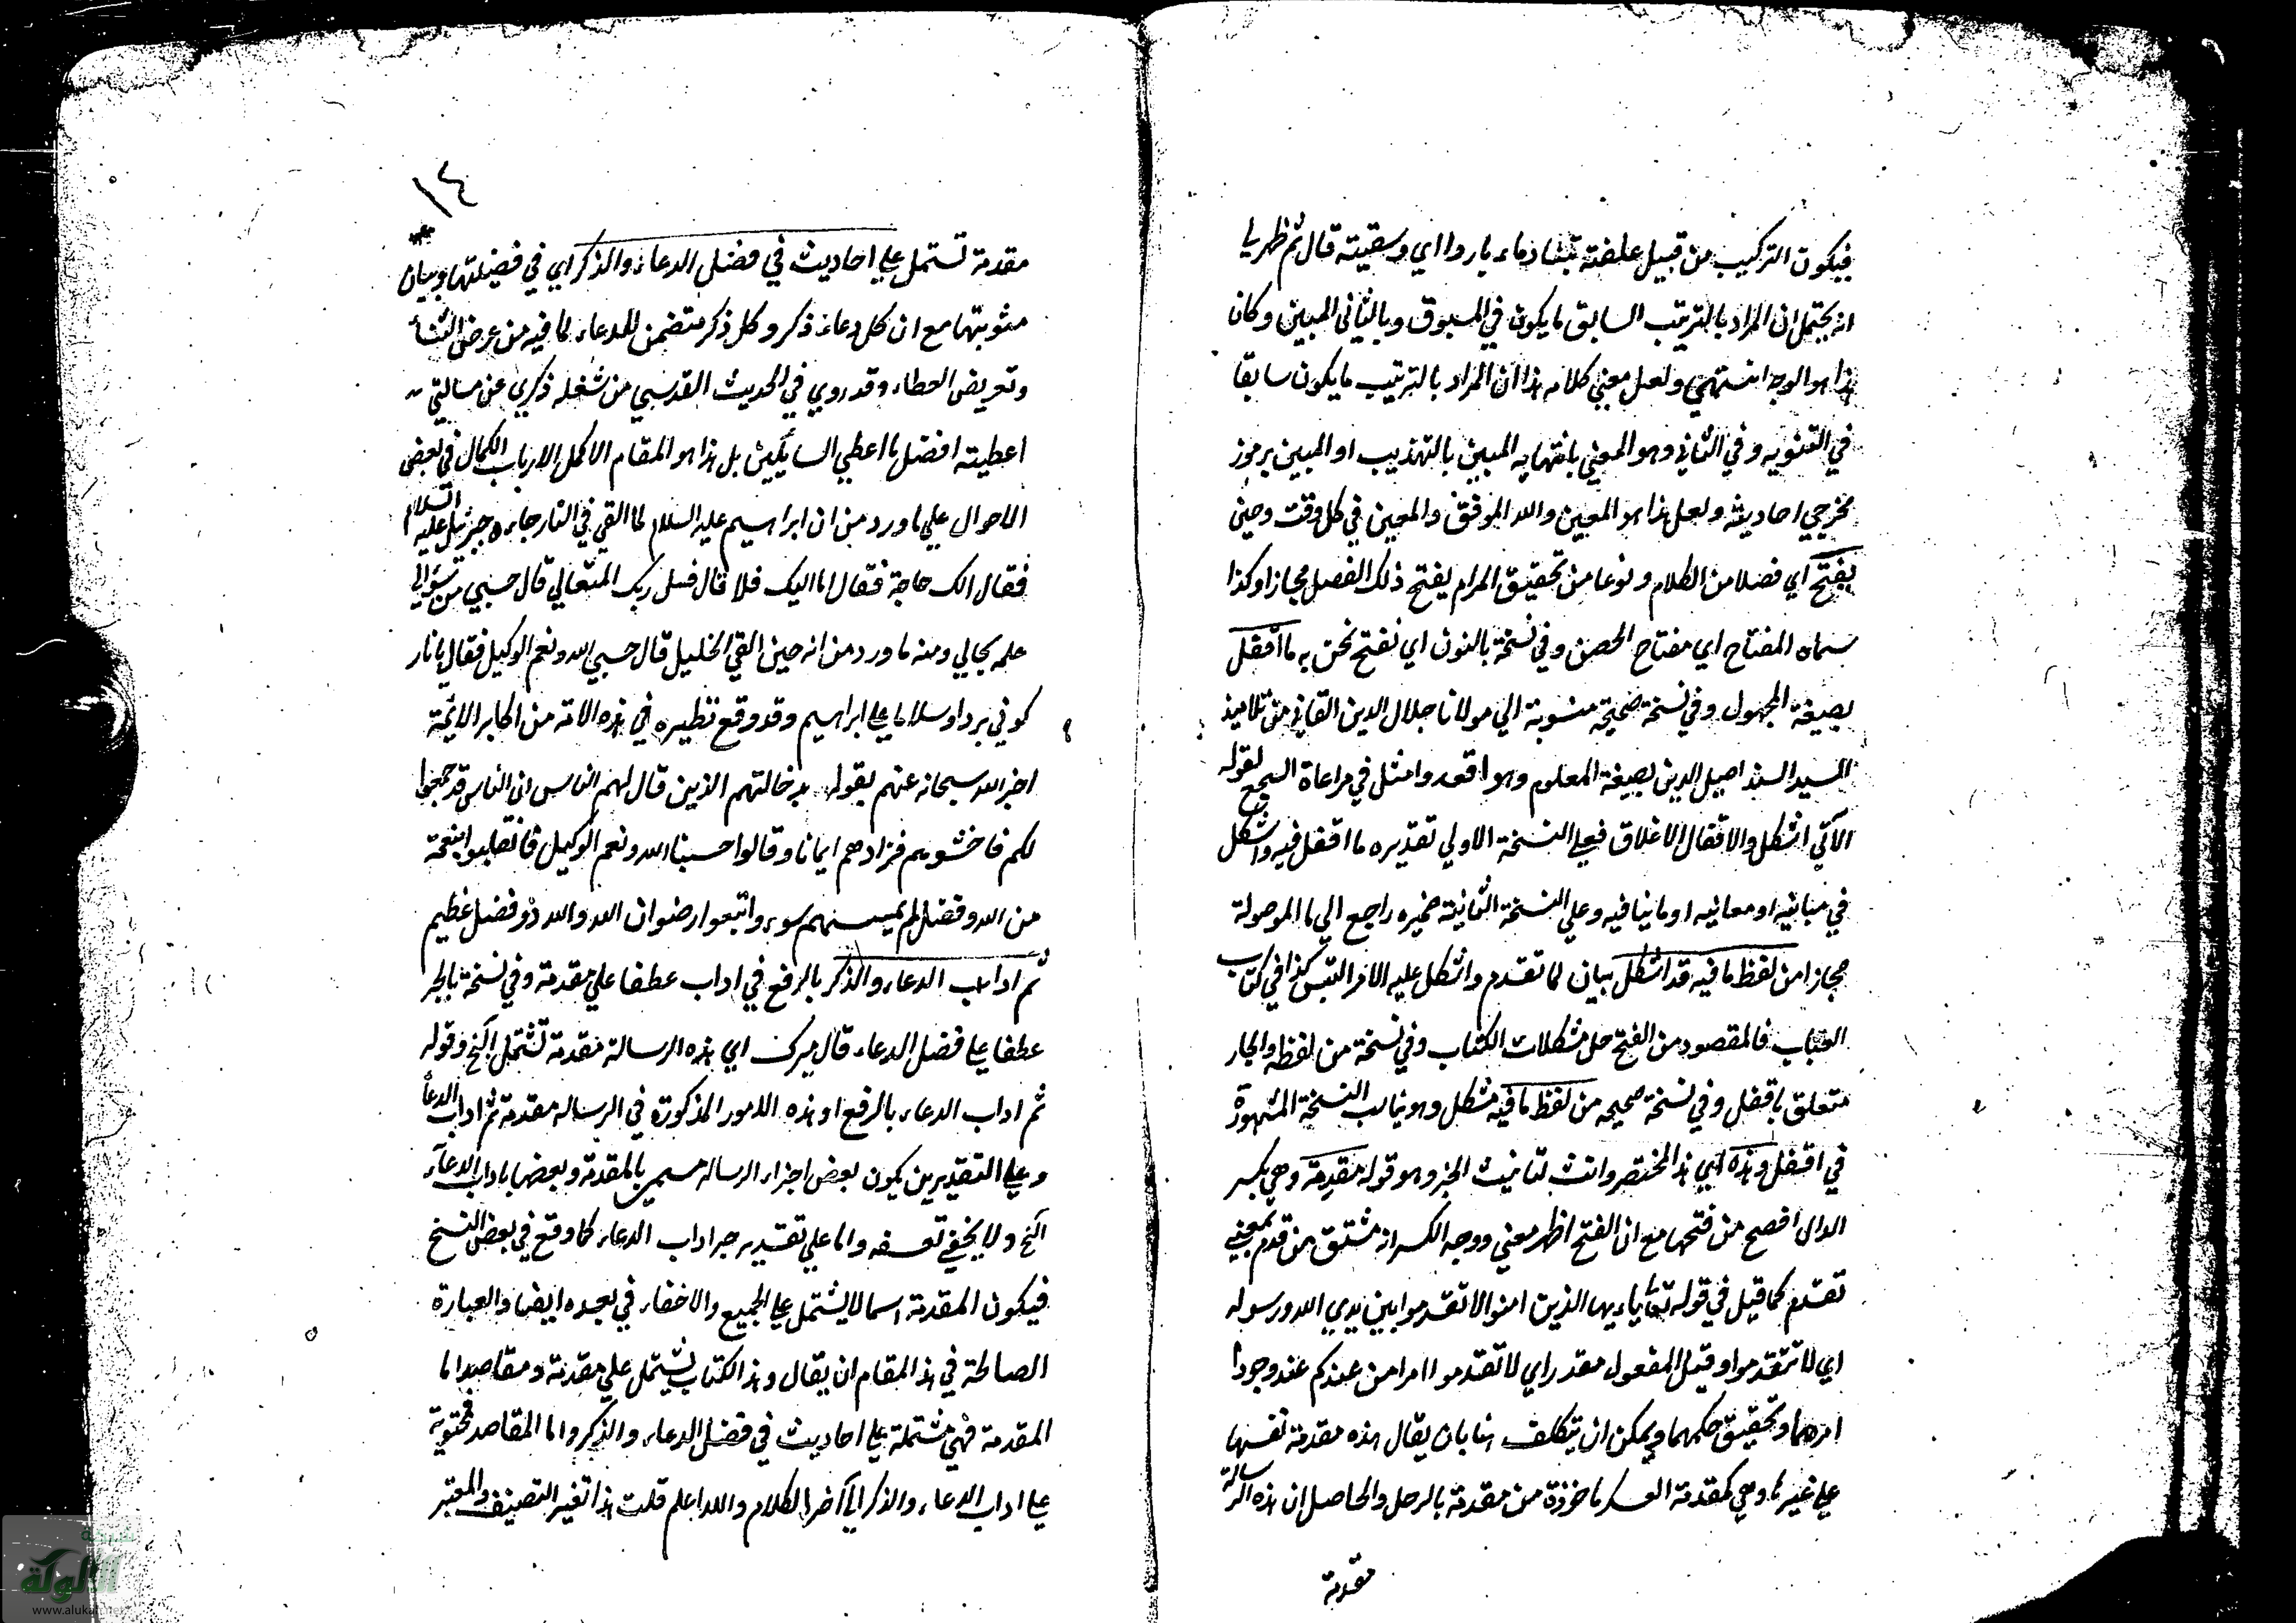 فيكون التركيب من قبيل علفته تبنا وماء باردا اي وسقيته قال ثم ظهر لي
انه يحتمل ان المراد بالترتيب السابق ما يكون في المسبوق وبالثاني المبين وكان
هذا هو الوجه انتهي ولعل معني كلامه هذا ان المراد بالترتيب ما يكون سابقا
في التنويه وفي الثاني وهو المعني بانتهايه المبين بالتهذيب او المبين برموز
مخرجي احاديثه ولعل هذا هو المعين والله الموفق والمعين في كل وقت وحين
يفتح اي فصلا من الكلام ونوعا من تحقيق المرام يفتح ذلك الفصل مجازا وكذا
سماه المفتاح اي مفتاح الحصن وفي نسخة بالنون اي نفتح نحن به ما اقفل
بصيغة المجهول وفي نسخة صحيحة منسوبة الي مولانا جلال الدين القايني من تلاميذ
السيد السند اصيل الدين بصيغة المعلوم وهو اقعد وامثل في مراعاة السجع لقوله
الآتي اشكل والاقفال الاغلاق فعلي النسخة الاولي تقديره ما اقفل فيه واشكل
في مبانيه او معانيه او ما ينافيه وعلي النسخة الثانية ضميره راجع الي ما الموصولة
مجازا من لفظ ما فيه قد اشكل بيان لما تقدم واشكل عليه الامر التبس كذا في كتاب
العباب فالمقصود من الفتح حل مشكلات الكتاب وفي نسخة من لفظه والجار
متعلق باقفل وفي نسخة صحيحه من لفظ ما فيه مشكل وهو يناسب النسخة المشهورة
في اقفل وهذه اي هذا المختصر وانث لتانيث الخبر وهو قوله مقدمة وهي بكسر
الدال افصح من فتحها مع ان الفتح اظهر معني ووجه الكسر انه مشتق من قدم بمعني
تقدم كما قيل في قوله تعا ياءيها الذين امنوا لا تقدموا بين يدي الله ورسوله
اي لا تتقدموا وقيل المفعول مقدر اي لا تقدموا امرا من عندكم عند وجود
امرهما وتحقيق حكمهما ويمكن ان يتكلف هنا بان يقال هذه مقدمة نفسها
علي غيرها وهي كمقدمة العسكر ماخوذة من مقدمة بالرحل والحاصل ان هذه الرسالة
مقدمة
١٤
مقدمة تشتمل علي احاديث في فضل الدعاء والذكر اي في فضيلتهما وبيان
مثوبتهما مع ان كل دعاء ذكر وكل ذكر متضمن للدعاء لما فيه من عرض الثناء
وتعريض العطاء وقد روي في الحديث القدسي من شغله ذكري عن مسالتي
اعطيته افضل ما اعطي السايلين بل هذا هو المقام الاكمل لارباب الكمال في بعض
الاحوال علي ما ورد من ان ابراهيم عليه السلام لما القي في النار جاءه جبرئيل عليه السلام
فقال الك حاجة فقال اما اليك فلا قال فسل ربك المتعالي قال حسبي من سؤالي
علمه بحالي ومنه ما ورد من انه حين القي الخليل قال حسبي الله ونعم الوكيل فقال يا نار
كوني بردا وسلاما علي ابراهيم وقد وقع نظيره في هذه الامة من اكابر الائمة
اخبر الله سبحانه عنهم بقوله الذين قال لهم الناس ان الناس قد جمعوا
لكم فاخشوهم فزادهم ايمانا وقالوا حسبنا الله ونعم الوكيل فانقلبوا بنعمة
من الله وفضل لم يمسسهم سوء واتبعوا رضوان الله والله ذو فضل عظيم
ثم اداب الدعاء والذكر بالرفع في اداب عطفا علي مقدمة وفي نسخة بالجر
عطفا علي فضل الدعاء قال ميرك اي هذه الرسالة مقدمة تشتمل الخ وقوله
ثم اداب الدعاء بالرفع او هذه الامور المذكورة في الرسالة مقدمة ثم اداب الدعا
وعلي التقديرين يكون بعض اجزاء الرسالة مسمي بالمقدمة وبعضها باداب الدعاء
الخ ولا يخفي تعسفه واما علي تقدير جر اداب الدعاء كما وقع في بعض النسخ
فيكون المقدمة اسما لا يشتمل علي الجميع والاخفاء في بعده ايضا والعبارة
الصالحة في هذا المقام ان يقال وهذا الكتاب يشتمل علي مقدمة ومقاصد اما
المقدمة فهي مشتملة علي احاديث في فضل الدعاء والذكر واما المقاصد فمحتوية
علي اداب الدعاء والذكر الي آخر الكلام والله اعلم قلت هذا تغير التصنيف والمعتبر
شبكة
الألوكة
www.alukah.net